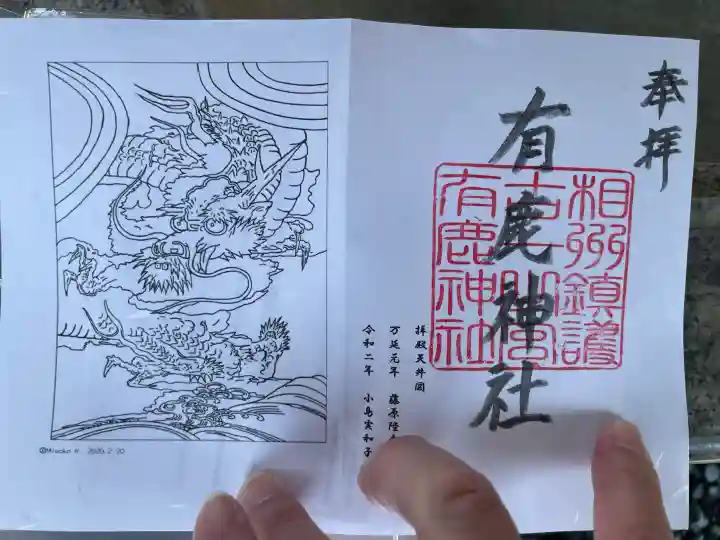 奉拝
有鹿神社
相州鎮護
有鹿神社
拝殿天井図
万延元年 藤原隆
令和二年 小島実和子
2020.2.20